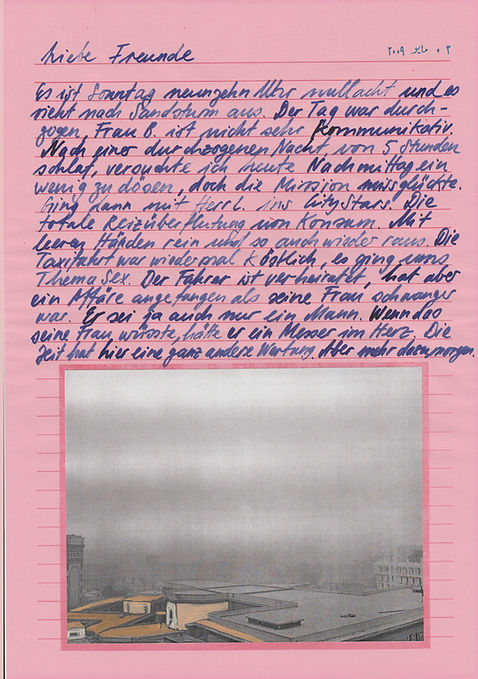 Liebe Freunde
٠٣ مايو ٢٠٠٩
Es ist Sonntag neunzehn Uhr nullacht und es
sieht nach Sandsturm aus. Der Tag war durch-
zogen, Frau B. ist nicht sehr kommunikativ.
Nach einer durchzogenen Nacht von 5 Stunden
schlaf, versuchte ich heute Nachmittag ein
wenig zu dösen, doch die Mission missglückte.
Ging dann mit Herr L. ins CityStars. Die
totale Reizüberflutung von Konsum. Mit
leeren Händen rein und so auch wieder raus. Die
Taxifahrt war wiedermal köstlich, es ging ums
Thema Sex. Der Fahrer ist verheiratet, hat aber
ein Affäre angefangen als seine Frau schwanger
war. Er sei ja auch nur ein Mann. Wenn das
seine Frau wüsste, hätte er ein Messer im Herz. Die
Zeit hat hier eine ganz andere Wertung. Aber mehr dazu, morgen.